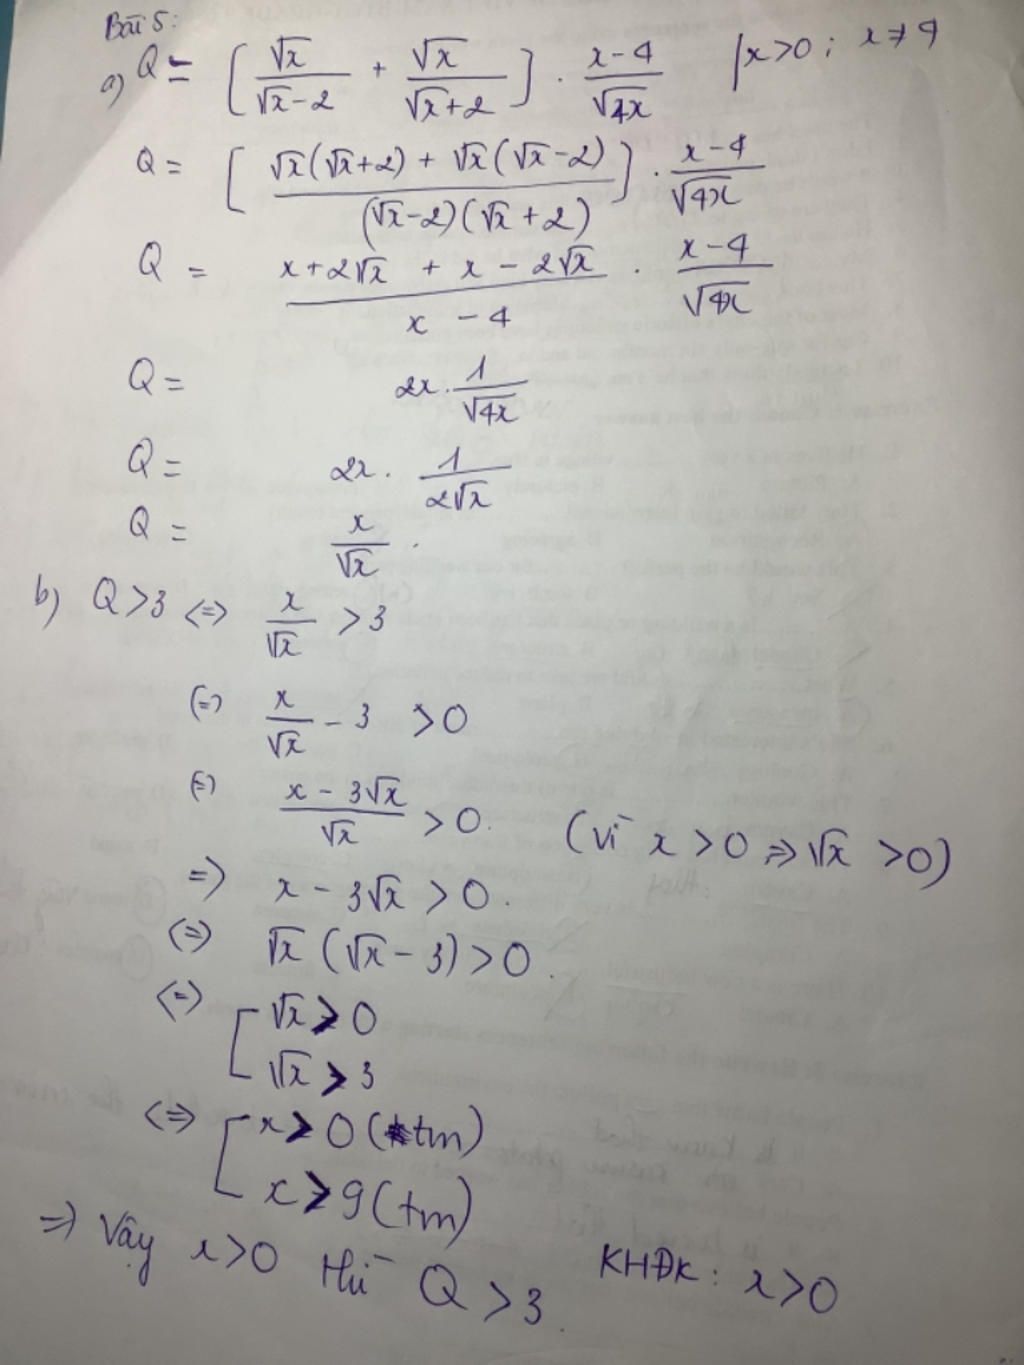 Bài 5:
a) Q = [ √x/(√x-2) + √x/(√x+2) ] . (x-4)/√4x | x>0 ; x≠4
Q = [ (√x(√x+2) + √x(√x-2))/((√x-2)(√x+2)) ] . (x-4)/√4x
Q = (x+2√x + x - 2√x)/(x-4) . (x-4)/√4x
Q = 2x . 1/√4x
Q = 2x . 1/(2√x)
Q = x/√x .
b) Q>3 <=> x/√x >3
(=) x/√x - 3 >0
(=) (x - 3√x)/√x >0. (vì x>0 => √x >0)
=> x - 3√x >0.
(=) √x (√x - 3) >0.
<=> [ √x > 0
√x > 3
<=> [ x > 0 (tm)
x > 9 (tm)
=> Vậy x>0 thì Q >3. KHĐK: x>0